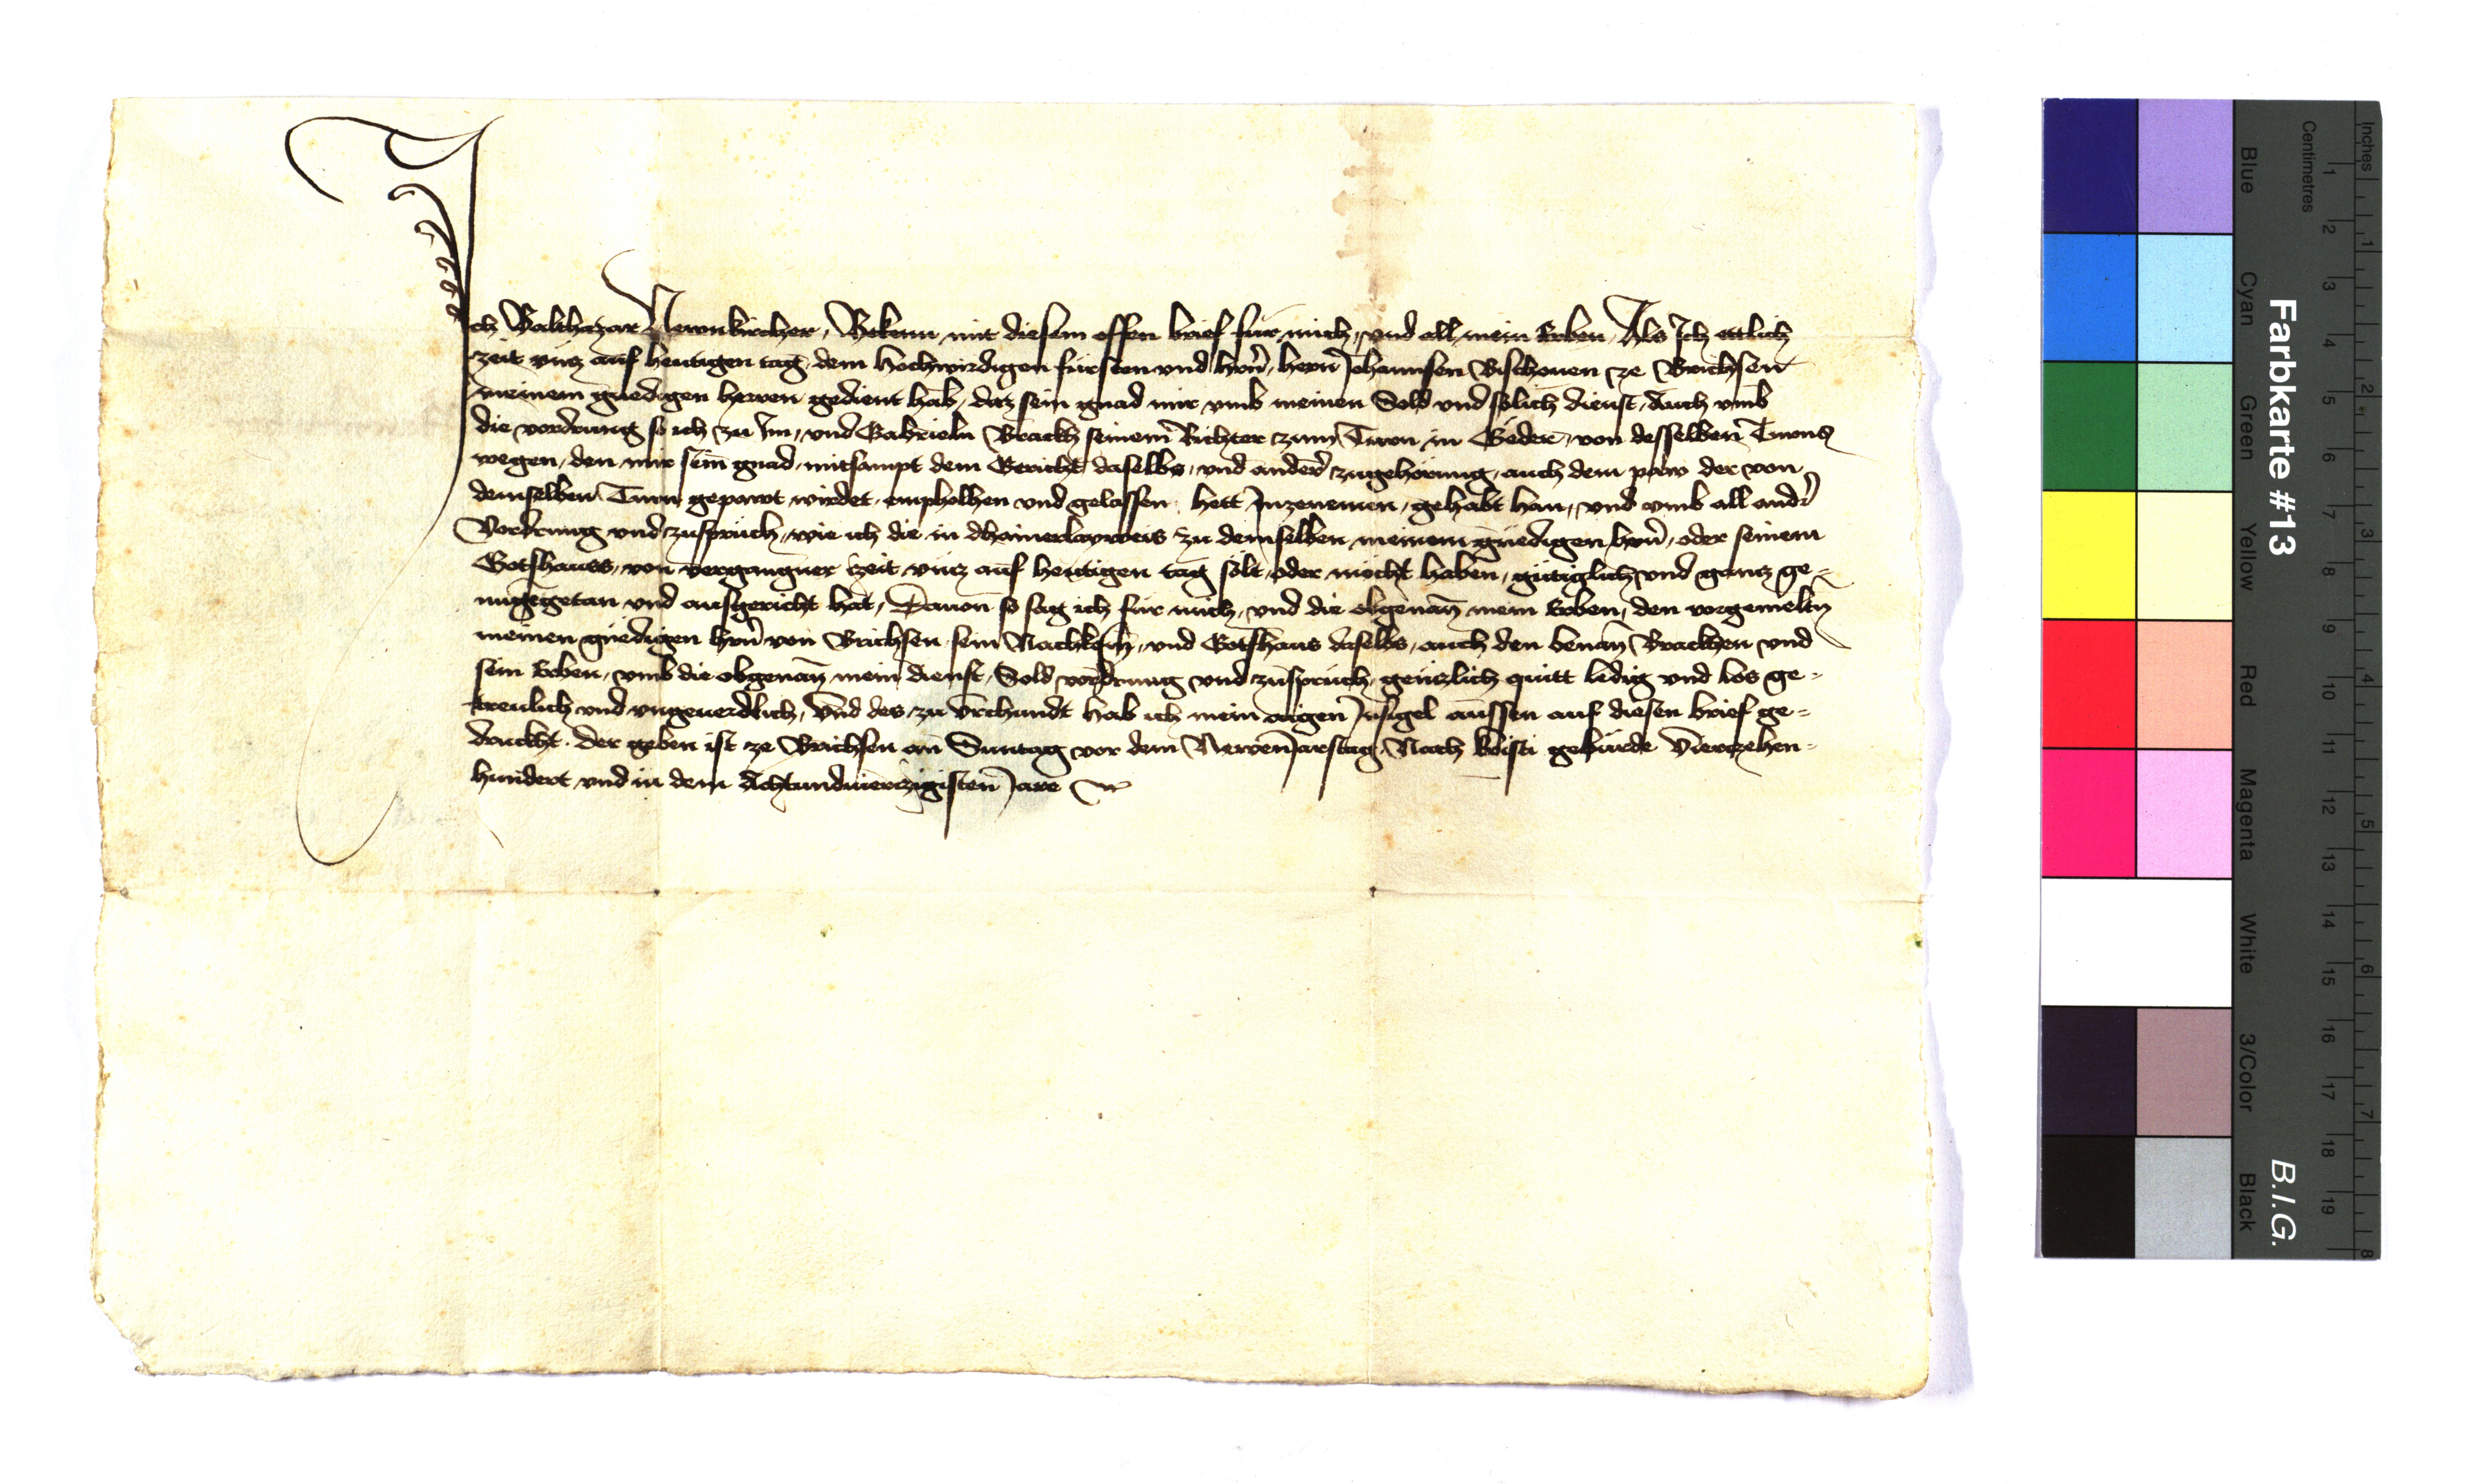 Ich Balthazar Newnkircher, Bekenn mit diesem offen brief für mich, und all mein Erben, Als Ich ettlich
zeit uncz auf heutigen tag, dem hochwirdigen fürsten und hrñ, herñ Johannsen Bischouen ze Brichsen
meinem gnedigen herren gedient hab, daz sein gnad mir umb meinen Sold und solich dienst, auch umb
die vordrung so ich zu Im, und Gabrieln Brackh seinem Richter zum Turn in Geder, von desselben Turns
wegen, den mir sein gnad, mitsampt dem Gericht daselbs, und ander zugehörung, auch dem paw der von
demselben Turn gepawt wirdet, empholhen und gelassen hett Inzenemen, gehabt han, und umb all andr
Vordrung und zuspruch, wie ich die in dhainerlayweis zu demselben meinem gnedigen hrñ, oder seinem
Gotshauss, von vergangner zeit uncz auf heutigen tag solt, oder möcht haben, gütiglich und gancz ge-
nuggetan und ausgericht hat, Dauon so sag ich für mich, und die obgenan mein Erben, den vorgemeltn
meinen gnedigen hrñ von Brichsen sein Nachkomn, und Gotshaus daselbs, auch den benan Brackhen und
sein Erben, umb die obgenan mein dienst, Sold vordrung und zuspruch, genczlich quitt ledig und los ge-
treulich und ungeuerdlich, Und des zu Urchundt hab ich mein aigen Insigel aussen auf diesen brief ge-
druckht. Der geben ist ze Brichsen an Suntag vor dem Newenjarstag, Nach Kristi geburde Vierczehen-
hundert und in dem Achtundvierczigisten Jare
Farbkarte #13
B.I.G.
Blue
Cyan
Green
Yellow
Red
Magenta
White
3/Color
Black
Centimetres
1 2 3 4 5 6 7 8 9 10 11 12 13 14 15 16 17 18 19
Inches
1 2 3 4 5 6 7 8